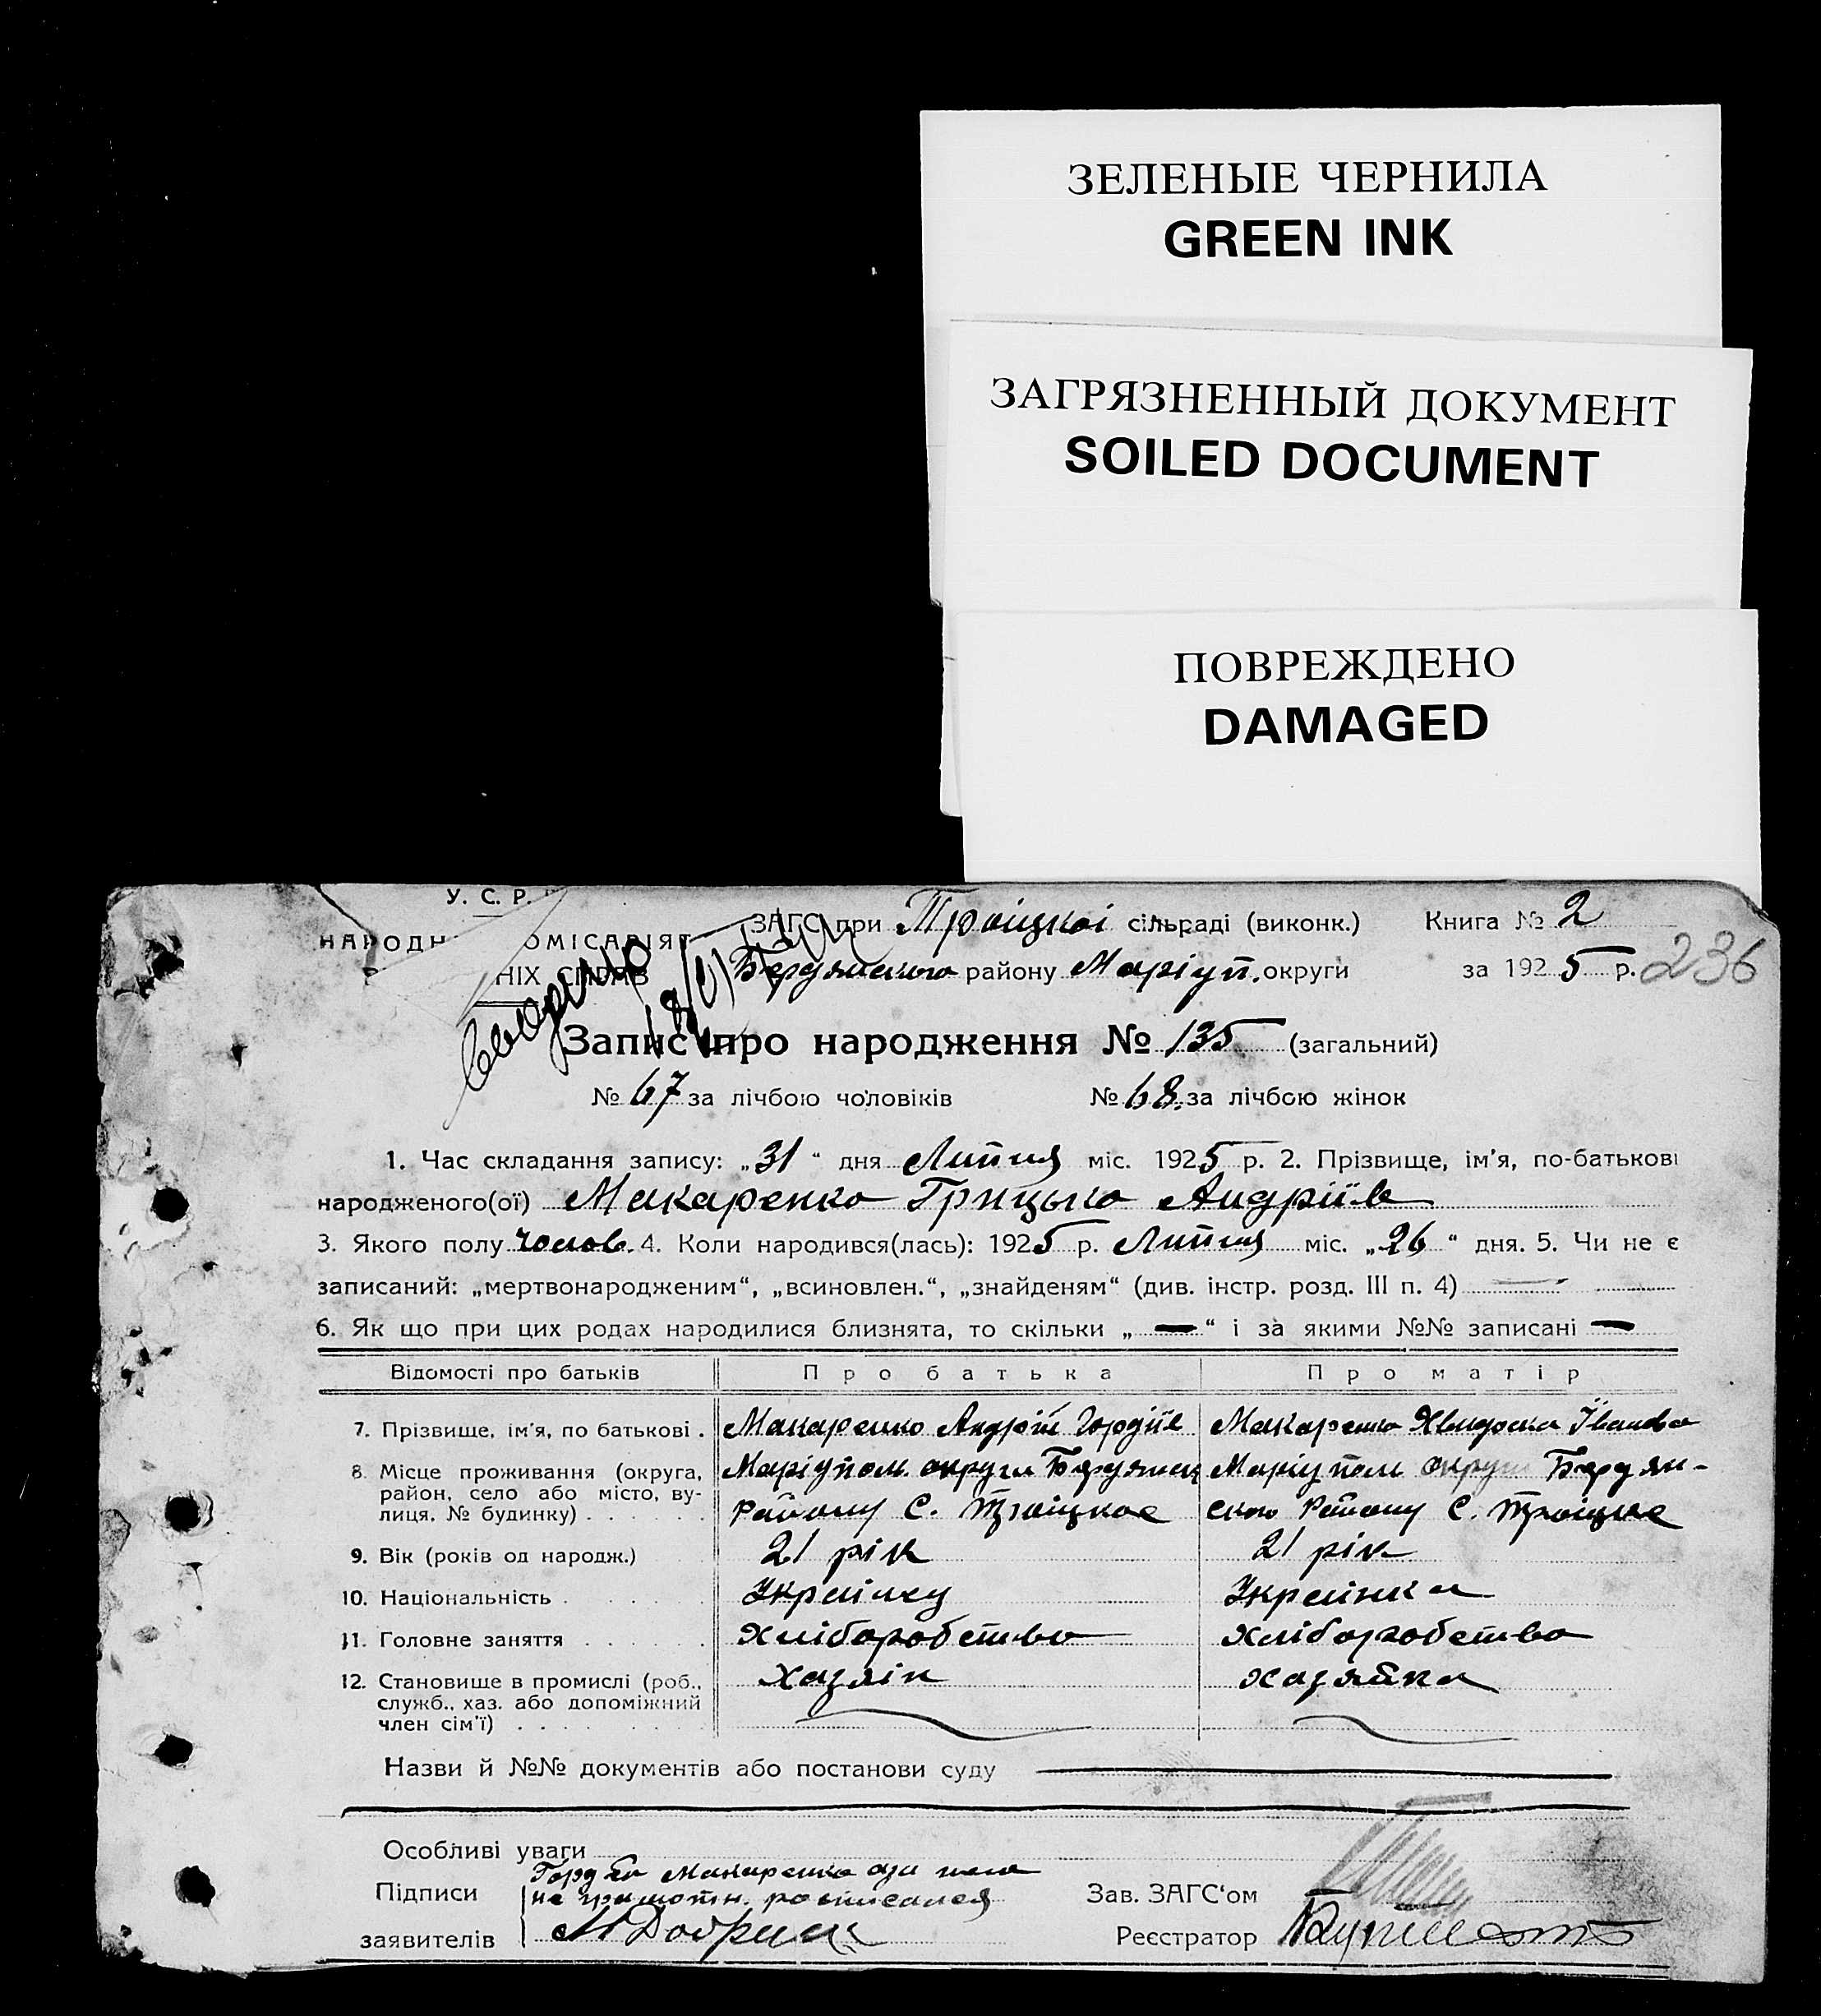 ЗЕЛЕНЫЕ ЧЕРНИЛА
GREEN INK
ЗАГРЯЗНЕННЫЙ ДОКУМЕНТ
SOILED DOCUMENT
ПОВРЕЖДЕНО
DAMAGED
У. С. Р. Р.
ЗАГС при Троіцкоі сільраді (виконк.) Книга № 2
НАРОДН ОМІСАРІЯТ
НІХ СПРАВ Бердянського району Маріуп. округи за 1925 р. 236
Запис про народження № 135 (загальний)
№ 67 за лічбою чоловіків № 68. за лічбою жінок
1. Час складання запису: „31“ дня Липня міс. 1925 р. 2. Прізвище, ім'я, по-батькові
народженого(ої) Макаренко Грицько Андріїв
3. Якого полу чолов. 4. Коли народився(лась): 1925 р. Липня міс. „26“ дня. 5. Чи не є
записаний: „мертвонародженим“, „всиновлен.“, „знайденям“ (див. інстр. розд. III п. 4)
6. Як що при цих родах народилися близнята, то скільки „—“ і за якими №№ записані —
Відомості про батьків Про батька Про матір
7. Прізвище, ім'я, по батькові . Макаренко Андрій Гордіїв Макаренко Явдоска Іванова
8. Місце проживання (округа, Маріупол. округи Бердянськ Маріупол округи Бердян-
район, село або місто, ву-
лиця, № будинку) . . . . . . Району С. Троіцкое ского Району С. Троіцкое
9. Вік (років од народж.) 21 рік 21 рік
10. Національність . . . . . . Украінец Украінка
11. Головне заняття . . . . . . Хліборобство Хліборобство
12. Становище в промислі (роб., Хазяін хазяйка
служб., хаз. або допоміжний
член сім'ї) . . . . . .
Назви й №№ документів або постанови суду
Особливі уваги
Горд Макаренко
Підписи не грамотн. росписался Зав. ЗАГС'ом
заявителів Реєстратор